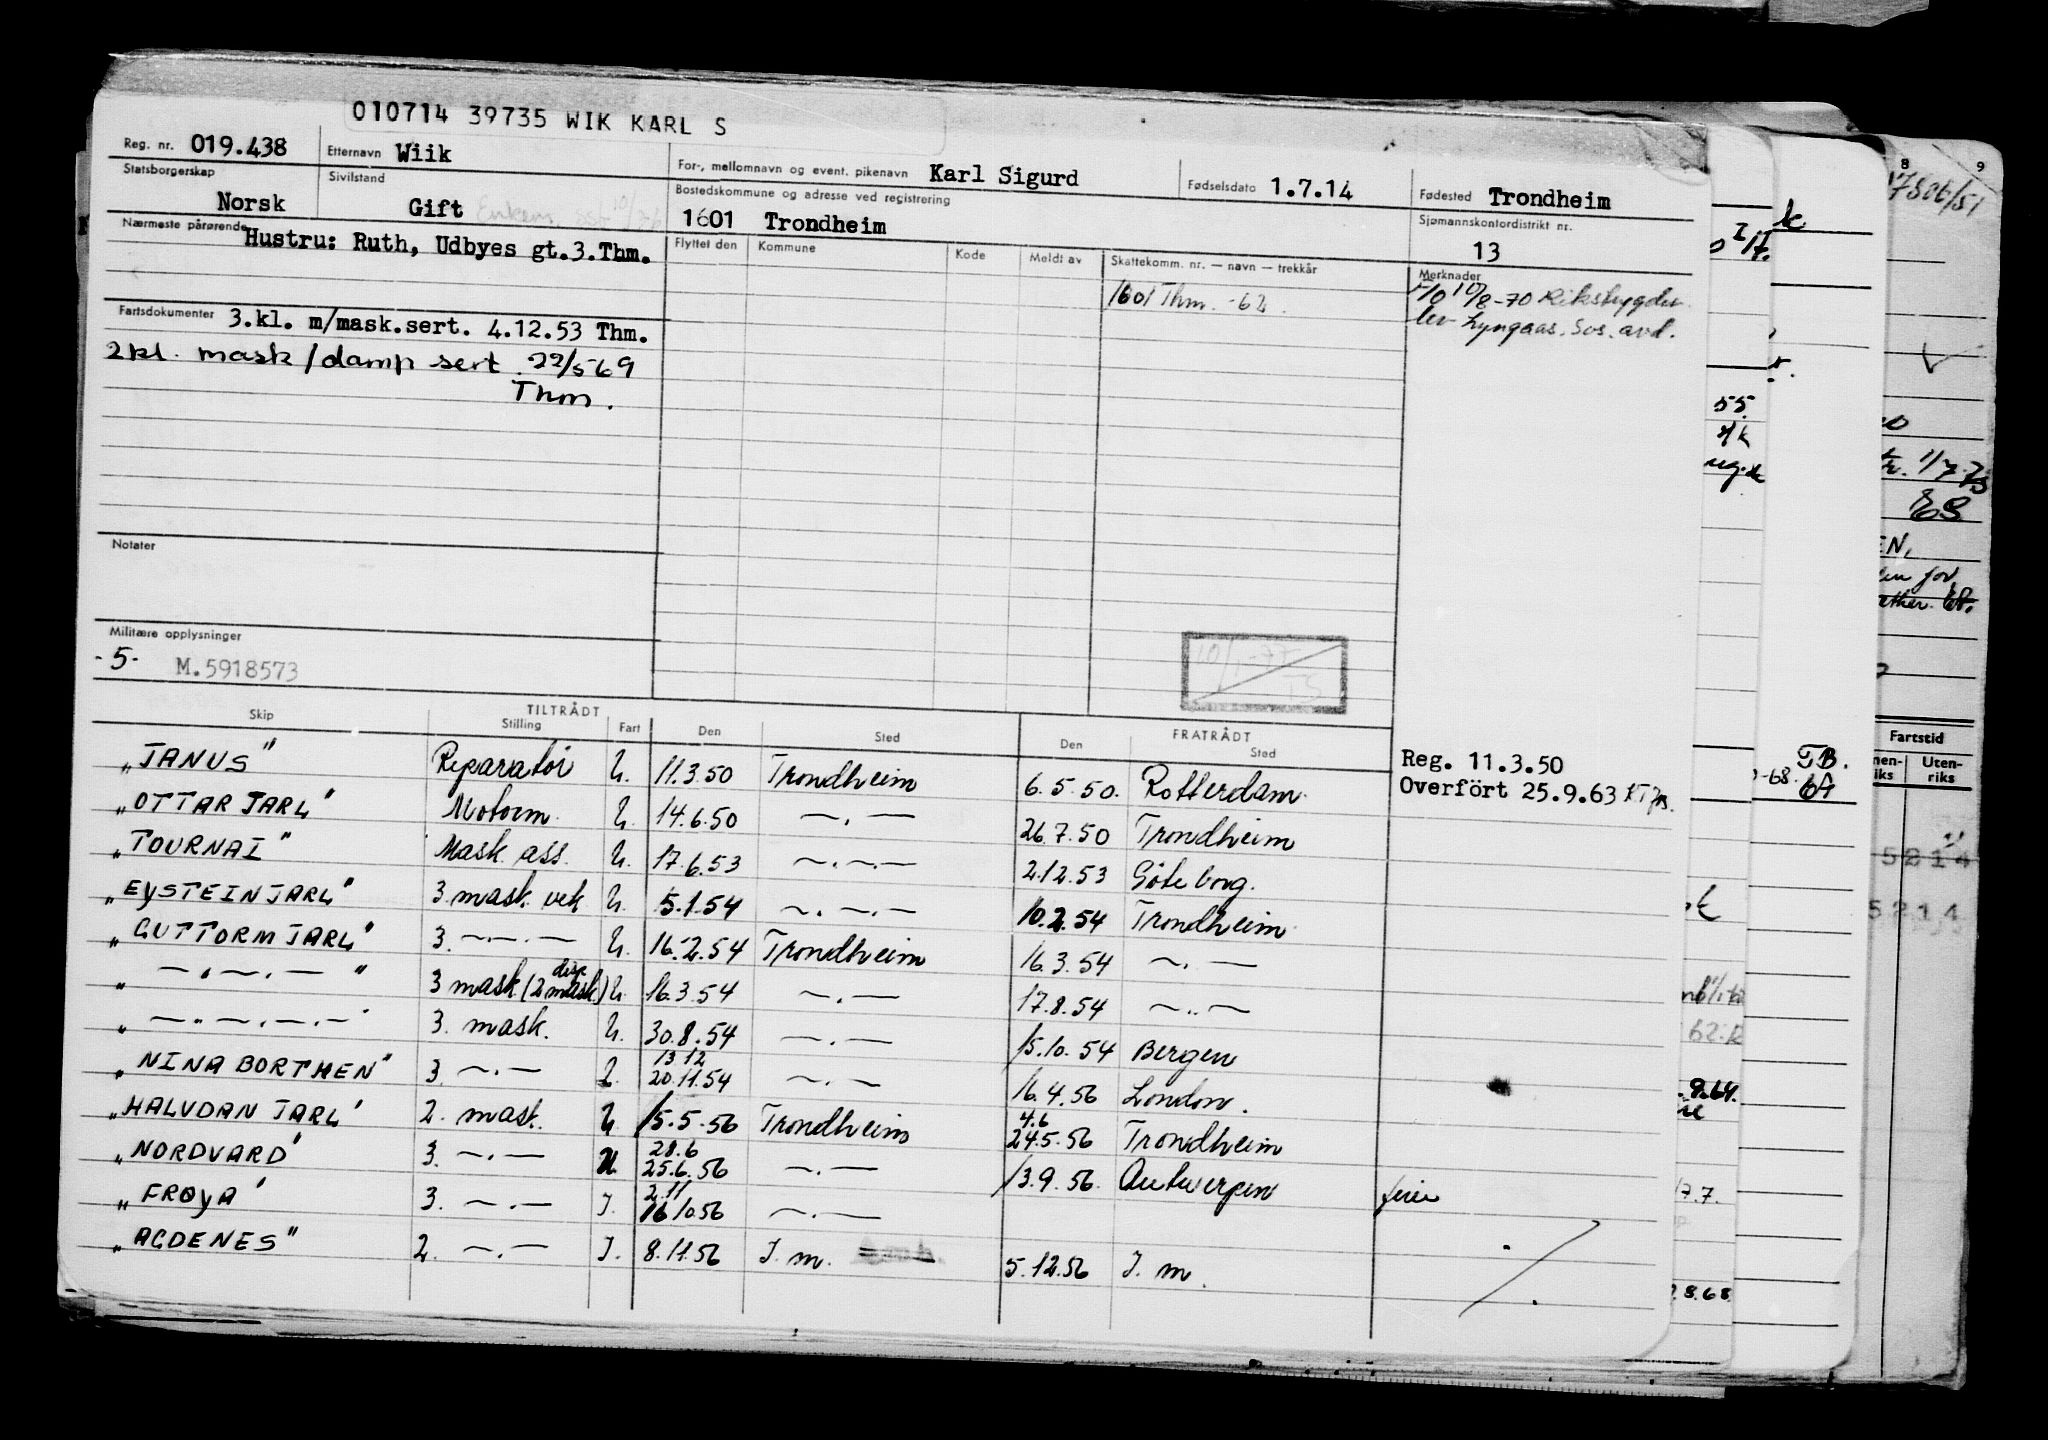 010714 39735 WIK KARL S
Reg. nr. 019.438 Etternavn Wiik For-, mellomnavn og event. pikenavn Karl Sigurd Fødselsdato 1.7.14 Fødested Trondheim
Statsborgerskap Norsk Sivilstand Gift Bostedskommune og adresse ved registrering 1601 Trondheim Sjømannskontordistrikt nr. 13
Nærmeste pårørende Hustru: Ruth, Udbyes gt.3.Thm.
Flyttet den Kommune Kode Meldt av Skattekomm. nr. — navn — trekkår Merknader
1601 Thm. -62
10/8-70 Rikstrygdev.
lev Lyngaas. Sos. avd.
Fartsdokumenter 3.kl. m/mask.sert. 4.12.53 Thm.
2kl. mask/damp sert. 22/5 69
Thm.
Notater
Militære opplysninger
-5- M.5918573
10/1-77
TS
TILTRÅDT FRATRÅDT
Skip Stilling Fart Den Sted Den Sted
Reg. 11.3.50
Overført 25.9.63
"JANUS" Reparatør U. 11.3.50 Trondheim 6.5.50. Rotterdam
"OTTAR JARL" Motorm. U. 14.6.50 — . — 26.7.50 Trondheim
"TOURNAI" Mask. ass. U. 17.6.53 — . — . — 2.12.53 Göteborg.
"EYSTEIN JARL" 3. mask. vek U. 5.1.54 — . — . — 10.2.54 Trondheim
"GUTTORM JARL" 3. — . — . — U. 16.2.54 Trondheim 16.3.54 — . —
" — . — . — " 3 mask (2 mask disp.) U. 16.3.54 — . — 17.8.54 — .. —
" — . — . — . — " 3. mask. U. 30.8.54 — . — 15.10.54 Bergen
13 12
"NINA BORTHEN" 3. — . — U. 20.11.54 — . — 16.4.56 London.
4.6
"HALVDAN JARL" 2. mask. U. 15.5.56 Trondheim 24.5.56 Trondheim
28.6
"NORDVARD" 3. — . — U. 25.6.56 — . — 13.9.56. Antwerpen ferie
2.11
"FRØYA" 3. — . — I. 16 10 56 — . —
"AGDENES" 2. — . — I. 8.11.56 I. m. 5.12.56 I. m.
8 9
17506/51
Fartstid
Uten-
riks
5214
5214